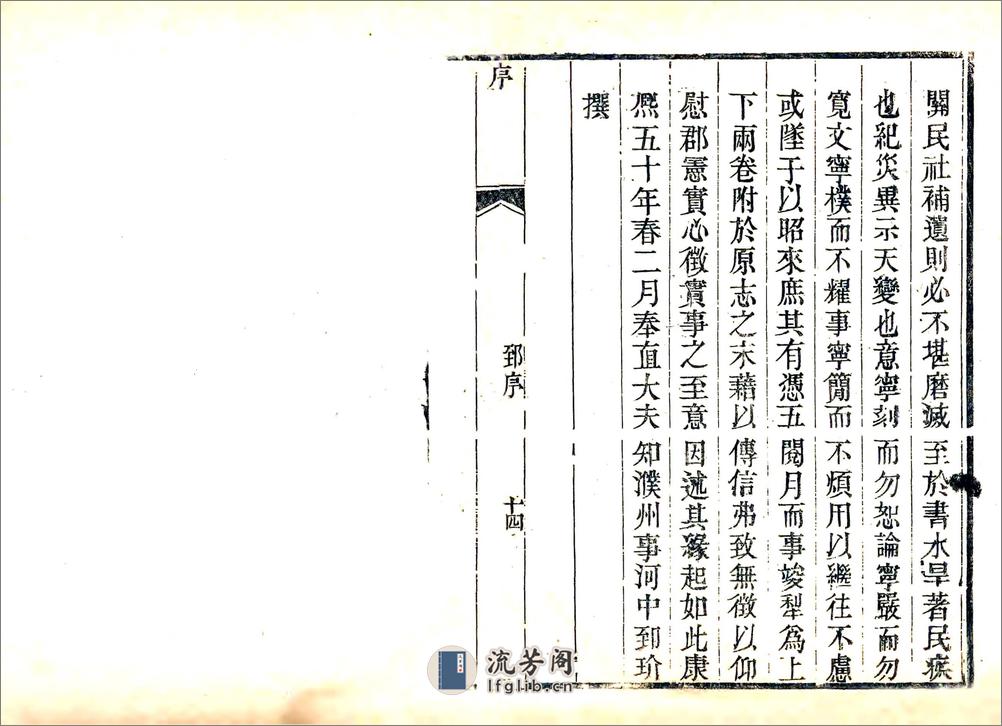 關民社補遺則必不堪磨滅至於書水旱著民疾
也紀災異示天變也意寧刻而勿恕論寧嚴而勿
寬文寧樸而不耀事寧簡而不煩用以繼往不慮
或墜于以昭來庶其有憑五閱月而事竣犁為上
下兩卷附於原志之末藉以傳信弗致無徵以仰
慰郡憲實心徵實事之至意因述其緣起如此康
熈五十年春二月奉直大夫知濮州事河中郅玠
撰
序
郅序
十四
流芳阁
lfglib.cn